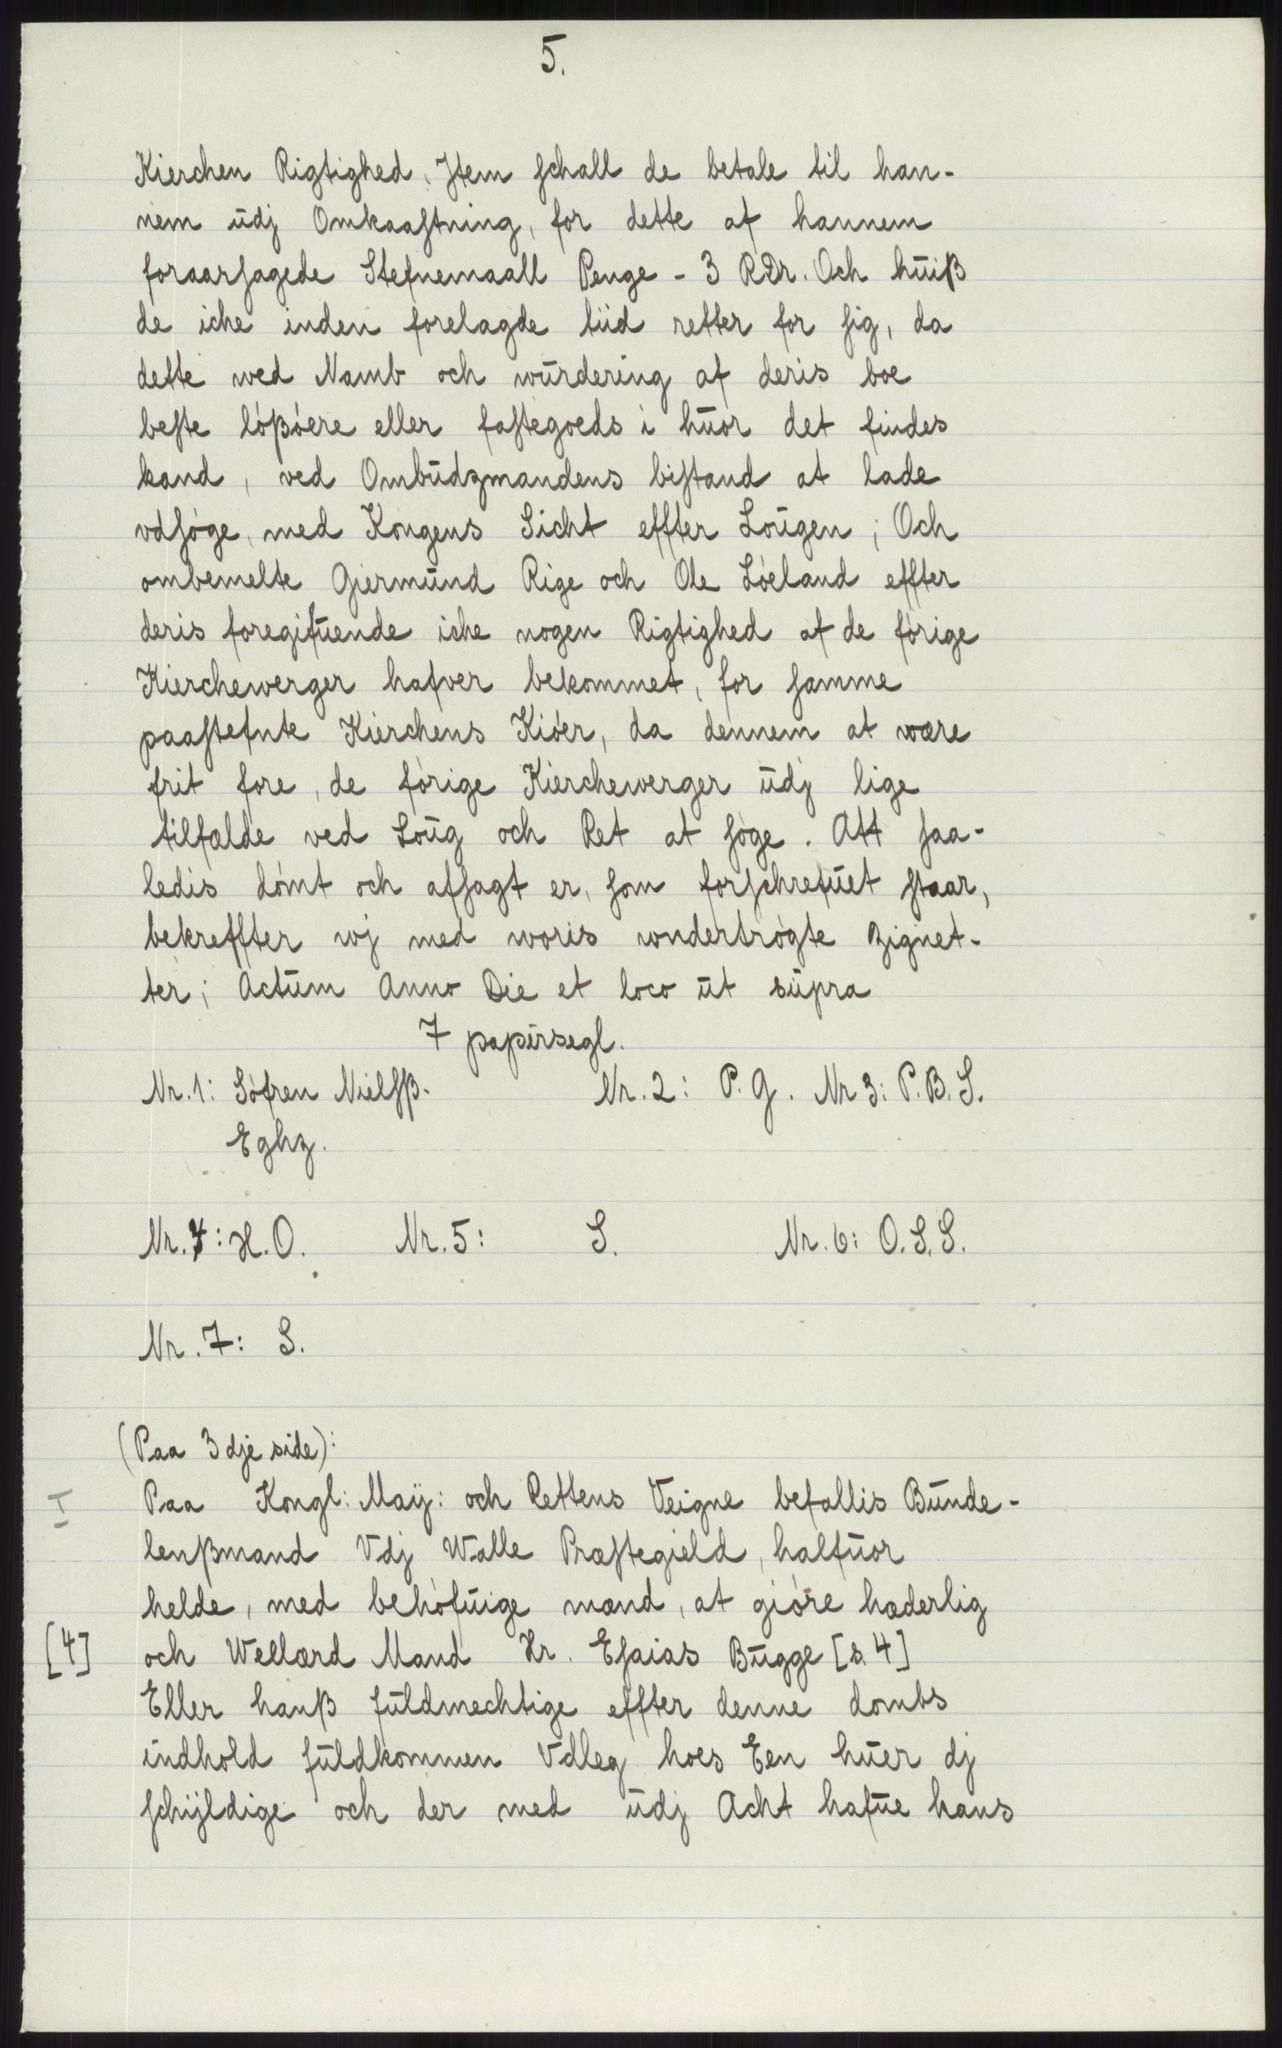 5.
Kierchen Rigtighed, Jtem schall de betale til han-
nem udj Omkaastning, for dette af hannem
foraarsagede Stefnemaall Penge - 3 Rdr. Och huiß
de iche inden forelagde tiid retter for sig, da
dette wed Namb och wurdering af deris boe
beste lößöere eller fastegoeds i huor det findes
kand, ved Ombudzmandens bistand at lade
vdsøge, med Kongens Sicht effter Lougen; Och
ombemelte Giermund Rige och Ole Löeland effter
deris foregifuende iche nogen Rigtighed af de förige
Kierchewerger hafver bekommet, for samme
paastefnte Kierchens Kiöer, da dennem at wære
frit fore, de förige Kierchewerger udj lige
tilfælde ved Loug och Ret at søge. Att saa-
ledis dömt och afsagt er, som forschrefuet staar,
bekreffter wj med woris wndertrögte Zignet-
ter; Actum Anno Die et loco ut supra
7 papirsegl.
Nr. 1: Söfren Nielsß. Nr. 2: P. G. Nr 3: P. B. S.
Eghz.
Nr. 4: H. O. Nr. 5: S. Nr. 6: O. S. S.
Nr. 7: S.
(Paa 3dje side):
I Paa Kongl: Maÿ: och Rettens Veigne befallis Bunde-
lenßmand Vdj Walle Præstegield, halfuor
helde, med behöfuige mænd, at giöre hæderlig
[4] och Wellærd Mand Hr. Esaias Bugge [s. 4]
Eller hanß fuldmechtige effter denne dombs
indhold fuldkommen Vdleg hoes Een huer dj
schyldige och der med udj Acht hafue hans